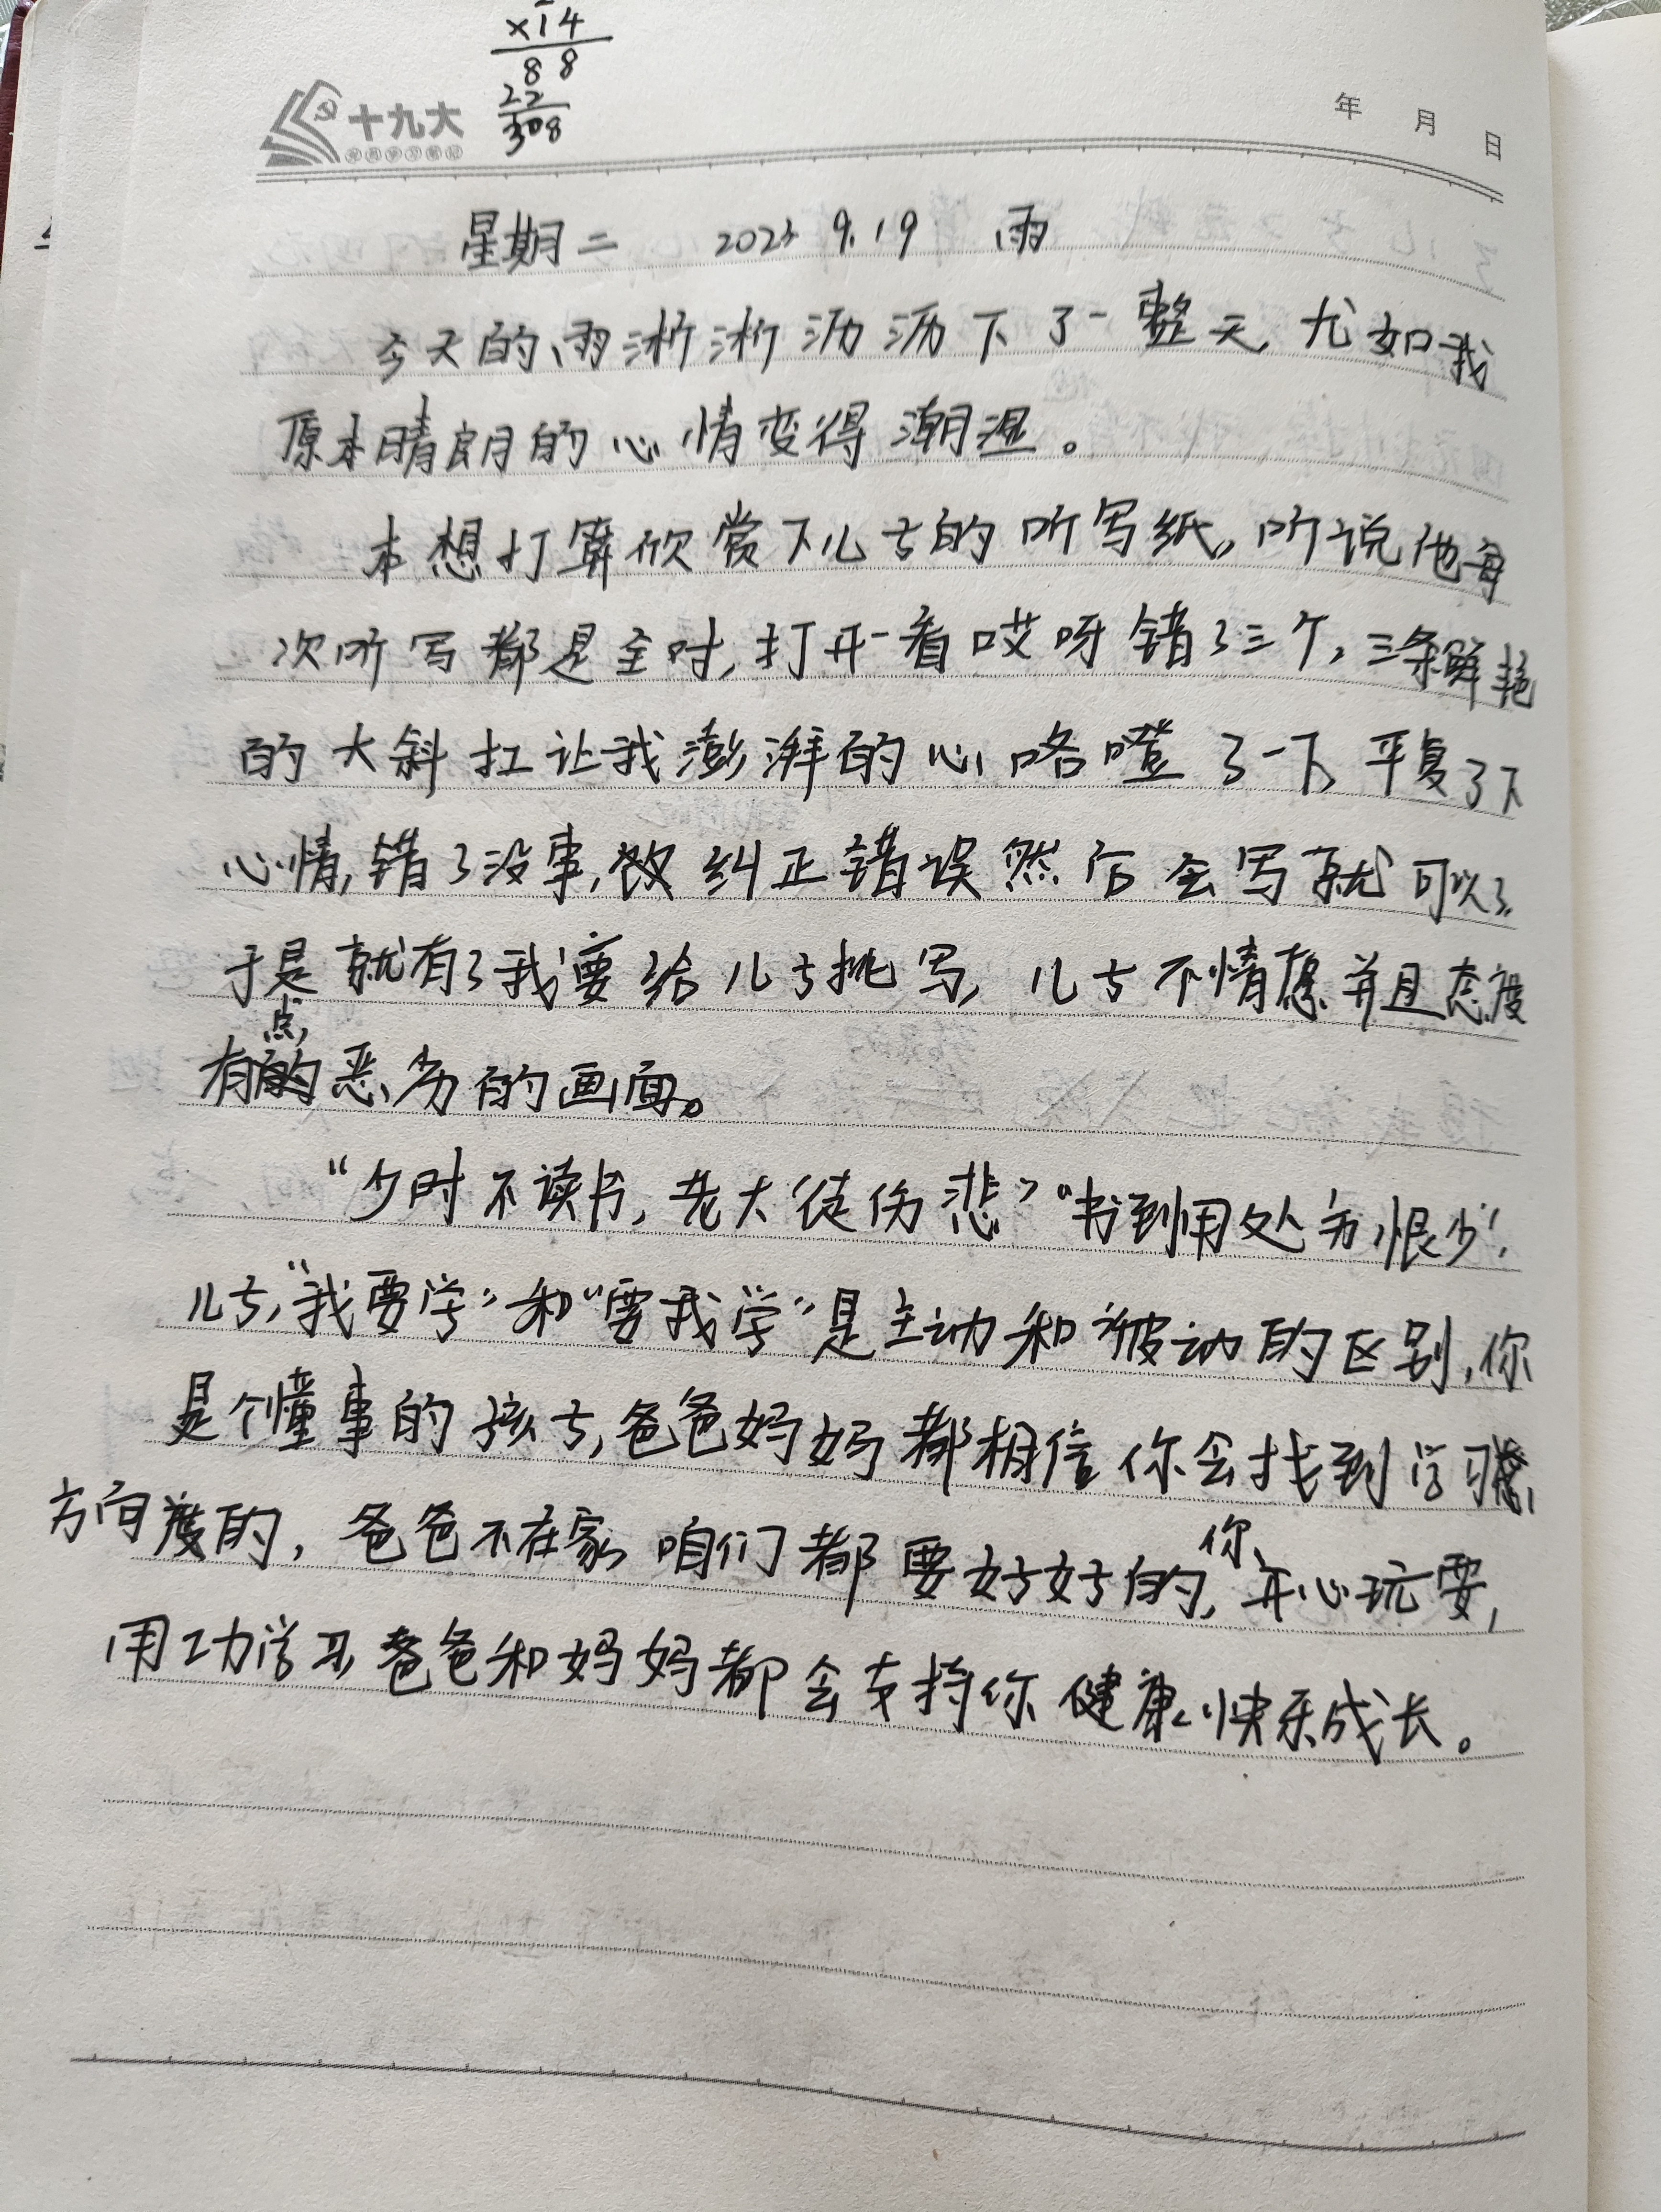 ×14
88
22
308
十九大
党员学习笔记
年 月 日
星期二 2023 9.19 雨
今天的雨淅淅沥沥下了一整天,尤如我
原本晴朗的心情变得潮湿。
本想打算欣赏下儿子的听写纸,听说他每
次听写都是全对,打开一看哎呀错了三个,三条鲜艳
的大斜扛让我澎湃的心咯噔了一下,平复了下
心情,错了没事,改纠正错误然后会写就可以了.
于是就有了我要给儿子挑写,儿子不情愿并且态度
有点恶劣的画面。
“少时不读书,老大徒伤悲”“书到用处方恨少”,
儿子,“我要学”和“要我学”是主动和被动的区别,你
是个懂事的孩子,爸爸妈妈都相信你会找到学习
方向的,爸爸不在家,咱们都要好好的,你开心玩耍,
用功学习,爸爸和妈妈都会支持你健康快乐成长。